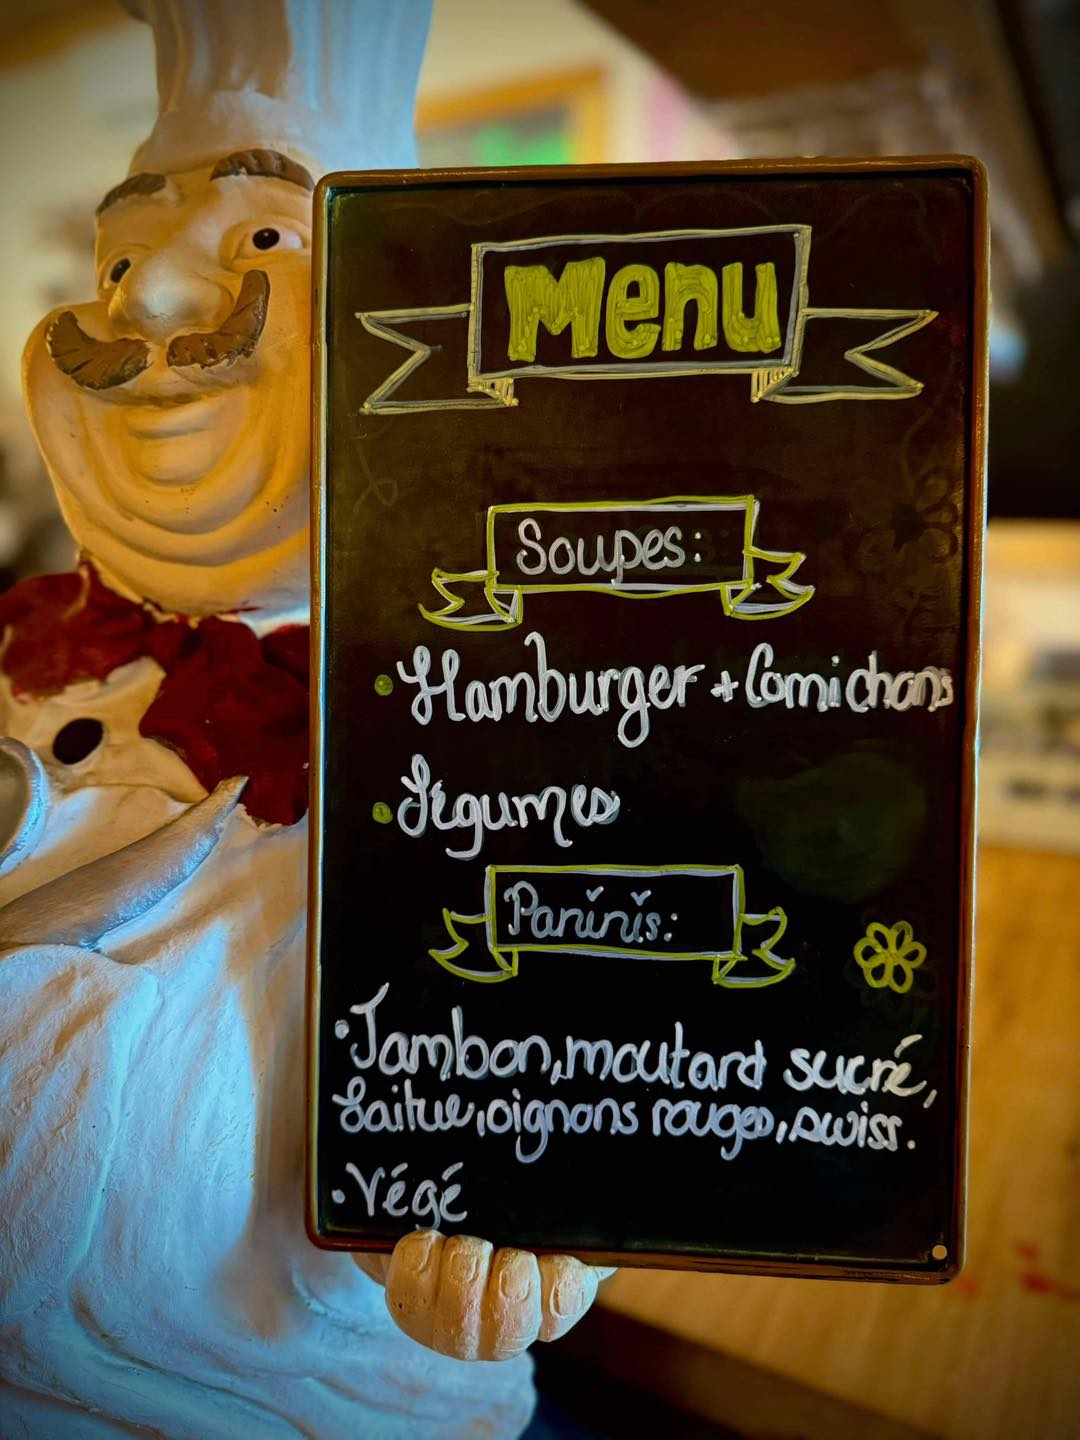 Menu
Soupes:
• Hamburger + Cornichons
• Légumes
Paninis:
• Jambon, moutard sucré,
laitue, oignons rouges, swiss.
• Végé